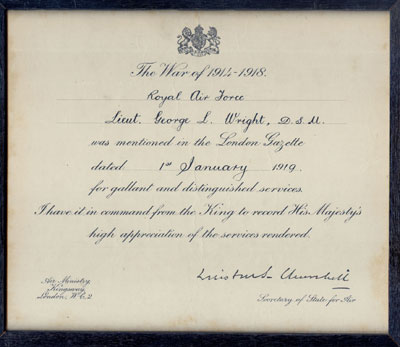 The War of 1914-1918.
Royal Air Force
Lieut. George L. Wright, D.S.M.
was mentioned in the London Gazette
dated 1st January 1919
for gallant and distinguished services.
I have it in command from the King to record His Majesty's
high appreciation of the services rendered.
Winston S. Churchill
Air Ministry,
Kingsway,
London, W.C.2
Secretary of State for Air